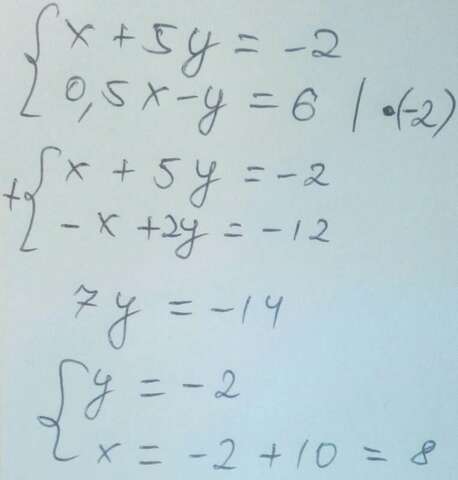 x + 5y = -2
0,5x - y = 6 | •(-2)
+ x + 5y = -2
-x + 2y = -12
7y = -14
y = -2
x = -2 + 10 = 8